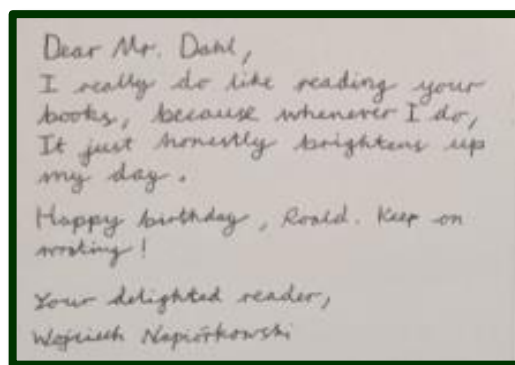 Dear Mr. Dahl,
I really do like reading your
books, because whenever I do,
It just honestly brightens up
my day.
Happy birthday, Roald. Keep on
writing!
Your delighted reader,
Wojciech Napiórkowski